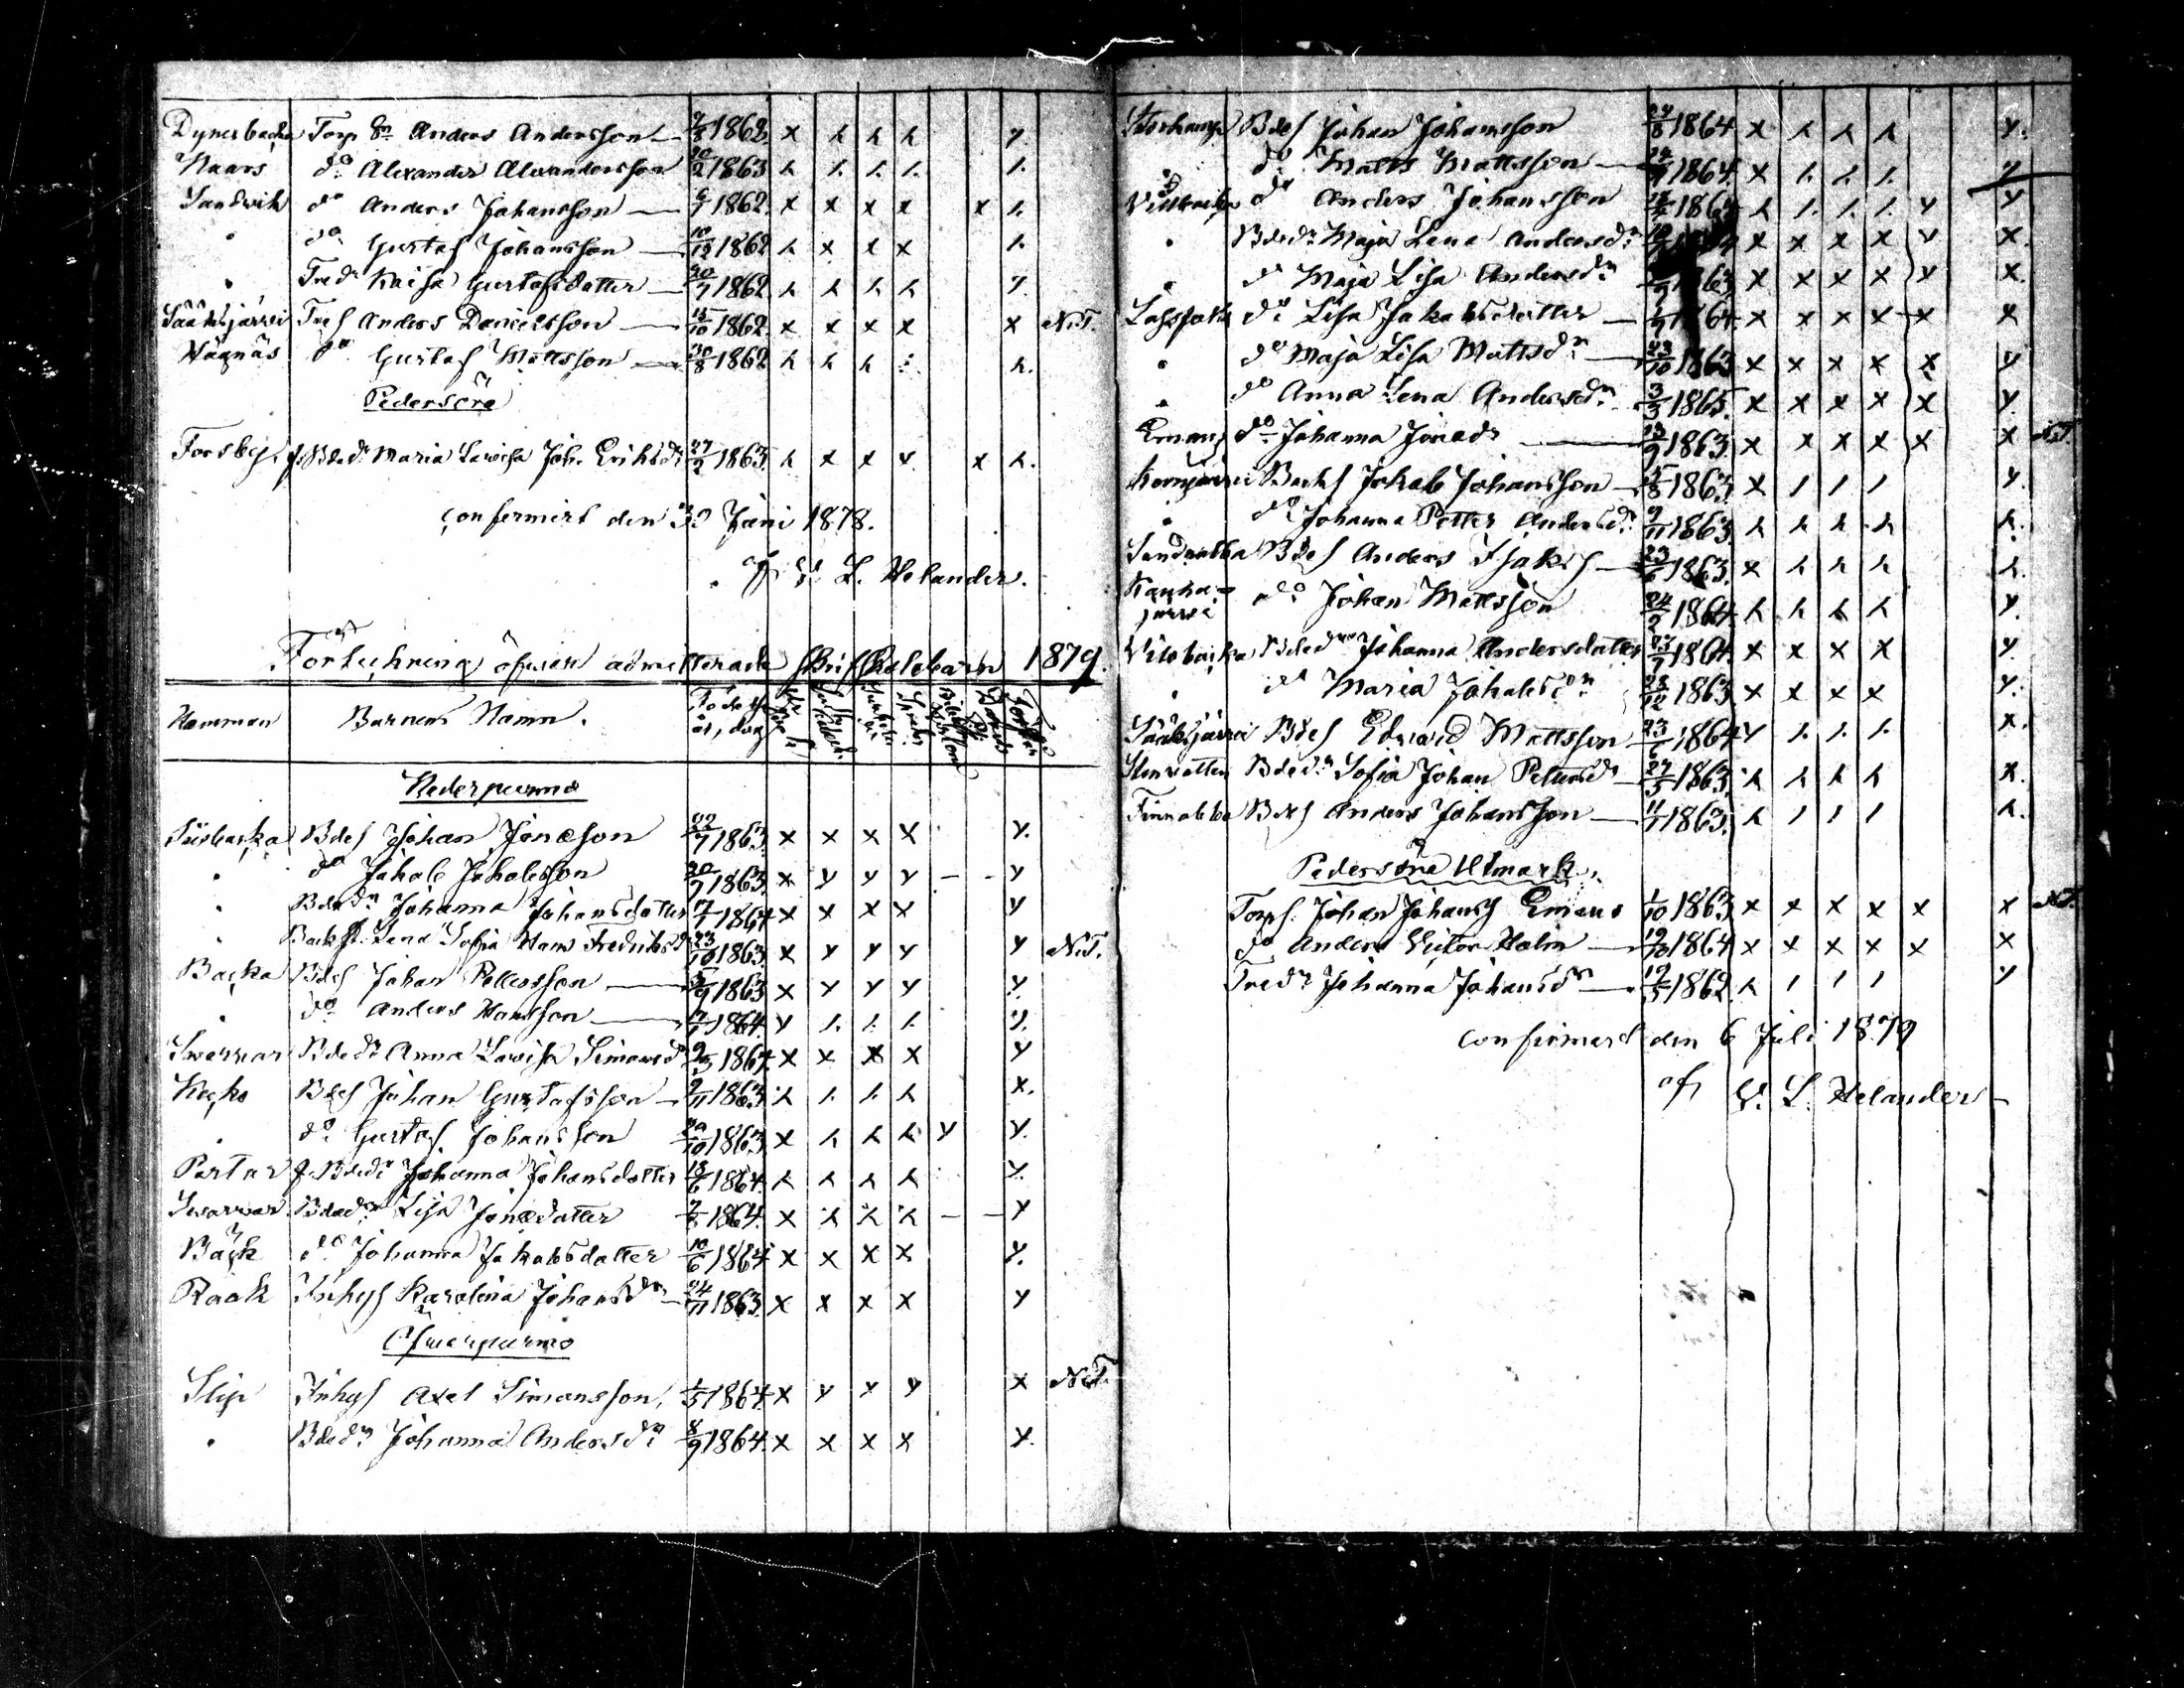 Dynesbacka Torp sn Anders Andersson 1862 x h h h y.
Naars do Alexander Alexandersson 1863 h h. h. h. h.
Sandwik do Anders Johansson 6/7 1862 x x x x x h.
" do Gustaf Johansson 10/12 1862 h x x x h.
" Tredr Kaisa Gustafsdotter 20/7 1862 h h h h y.
Sääksjärvi Tres Anders Danielsson 15/10 1862 x x x x x N.T.
Hägnäs do Gustaf Mattsson 30/8 1862 h h h h.
Pedersöre
Forsby Bdedr Maria Lovisa Joh. Eriksdr 27/2 1863 h x x x x h.
confirmirt den 30 Juni 1878.
af V. L. Helander.
Förtechning öfwer admitterade Skriftskolebarn 1879.
Hemman Barnens Namn. Födelse år, dag
Nederpurmo
Sisbacka Bdes Johan Jonasson 22/7 1863 x x x x y.
" do Jakob Jakobsson 30/7 1863 x y y y - - y
" Bdedr Johanna Johansdotter 17/7 1864 x x x x y
" Lena Sofia Hans Fredriksdr 23/10 1863 x y y y y N.T.
Backa Bdes Johan Pettersson 5/9 1863 x y y y y.
" do Anders Hansson 1864 y h. h. h. y.
Swarvar Bdedr Anna Lovisa Simonsdr 1864 x x x x y
Kecko Bdes Johan Gustafsson 9/11 1863 h h. h. h x.
" do Gustaf Johansson 1863 x h h h y y.
Portar Bdedr Johanna Johansdotter 13/6 1864 h h h h y.
Swarvar Bdedr Lisa Jonædotter 1864 x h h h - - y
Bäck do Johanna Jakobsdotter 10/6 1864 x x x x y.
Raak Inhys Karolina Johansdr 24/11 1863 x x x x y
Öfwerpurmo
Slip Inhys Axel Simonsson, 1/5 1864 x y y y x N.T.
" Bdedr Johanna Andersdr 8/9 1864 x x x x y.
Storkamp Bdes Johan Johansson 24/8 1864 x h h h y.
" do Matts Mattsson 1864 x h. h. h. y
Vilobacka do Anders Johansson 1864 h h. h. h. y y
" Bdedr Maja Lena Andersdr x x x x y x.
" do Maja Lisa Andersdr 1863 x x x x y x.
Lassfolk do Lisa Jakobsdotter 1864 x x x x x x
" do Maja Lisa Mattsdr 23/10 1863 x x x x x y
" do Anna Lena Andersdr 3/3 1865 x x x x x y.
Emaus do Johanna Jonædr 13/9 1863 x x x x x x N.T.
Kornjärvi Backs Jakob Johansson 5/8 1863 x h h h y.
" do Johanna Petter Andersdr 9/11 1863 h h h h h.
Sandnabba Bdes Anders Isaks 23/6 1863 x h h h h.
Kauhajärvi do Johan Mattsson 24/2 1864 h h h h y.
Vilobacka Bdedr Johanna Andersdotter 23/7 1864 x x x x y.
" do Maria Jakobsdr 28/12 1863 x x x x y.
Sääksjärvi Bdes Edvard Mattsson 23/6 1864 y h. h. h. x.
Stenvatten Bdedr Sofia Johan Pettersdr 27/5 1863 h h h h x.
Finnabba Bdes Anders Johansson 11/7 1863 h h h h h.
Pedersöre Utmark.
Torps. Johan Johans Emaus 1/10 1863 x x x x x x N.T.
do Anders Victor Holm 19/10 1864 x x x x x x
Tredr Johanna Johansdr 19/5 1862 h h h h y
confirmerd den 6 Juli 1879
af V. L. Helander